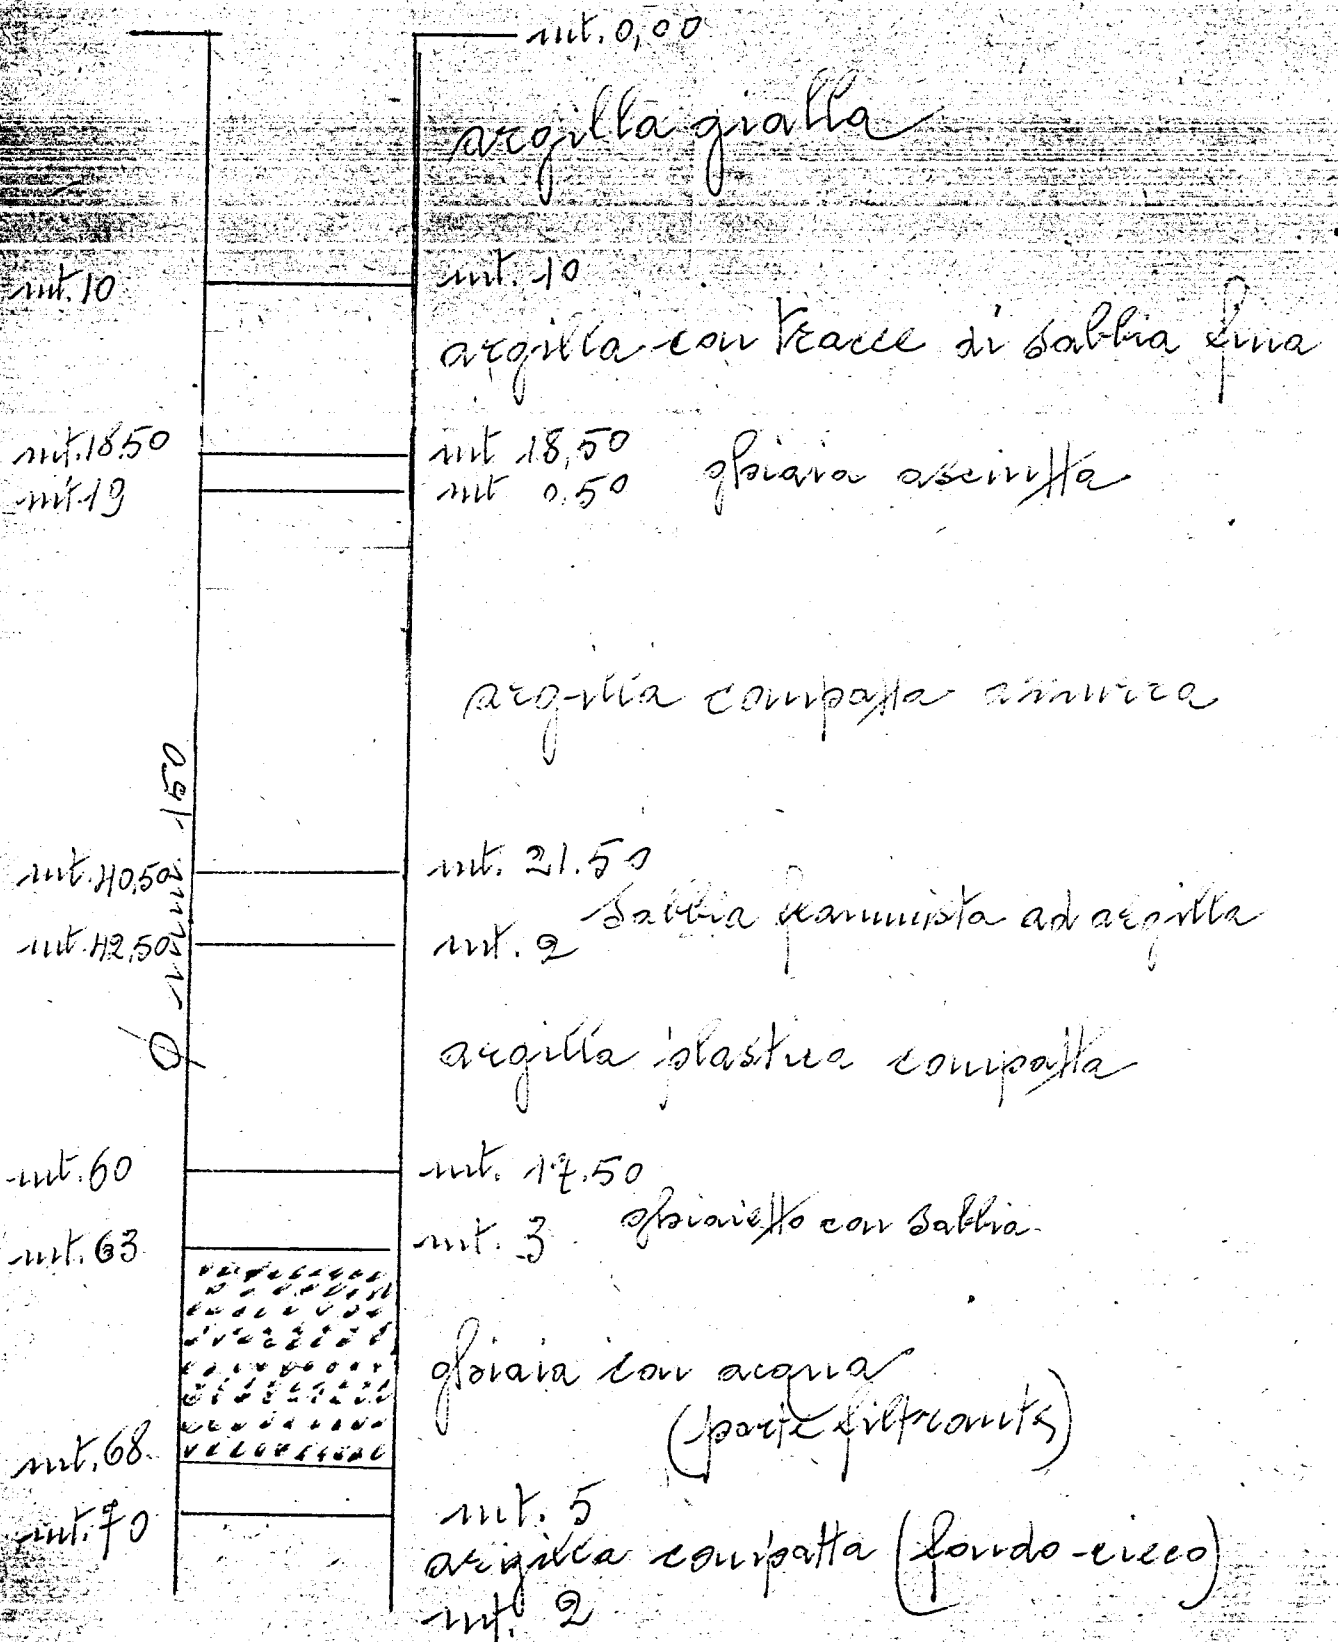 mt. 0,00
argilla gialla
mt. 10 mt. 10
argilla con tracce di sabbia fina
mt. 18.50 mt 18,50 ghiaia asciutta
mt 19 mt 0.50
argilla compatta azzurra
Ø mm 150
mt. 40,50 mt. 21.50
sabbia frammista ad argilla
mt. 42,50 mt. 2
argilla plastica compatta
mt. 60 mt. 17.50
ghiaietto con sabbia
mt. 63 mt. 3
ghiaia con acqua
(parte filtrante)
mt. 68
mt. 70 mt. 5
argilla compatta (fondo-cieco)
mt. 2